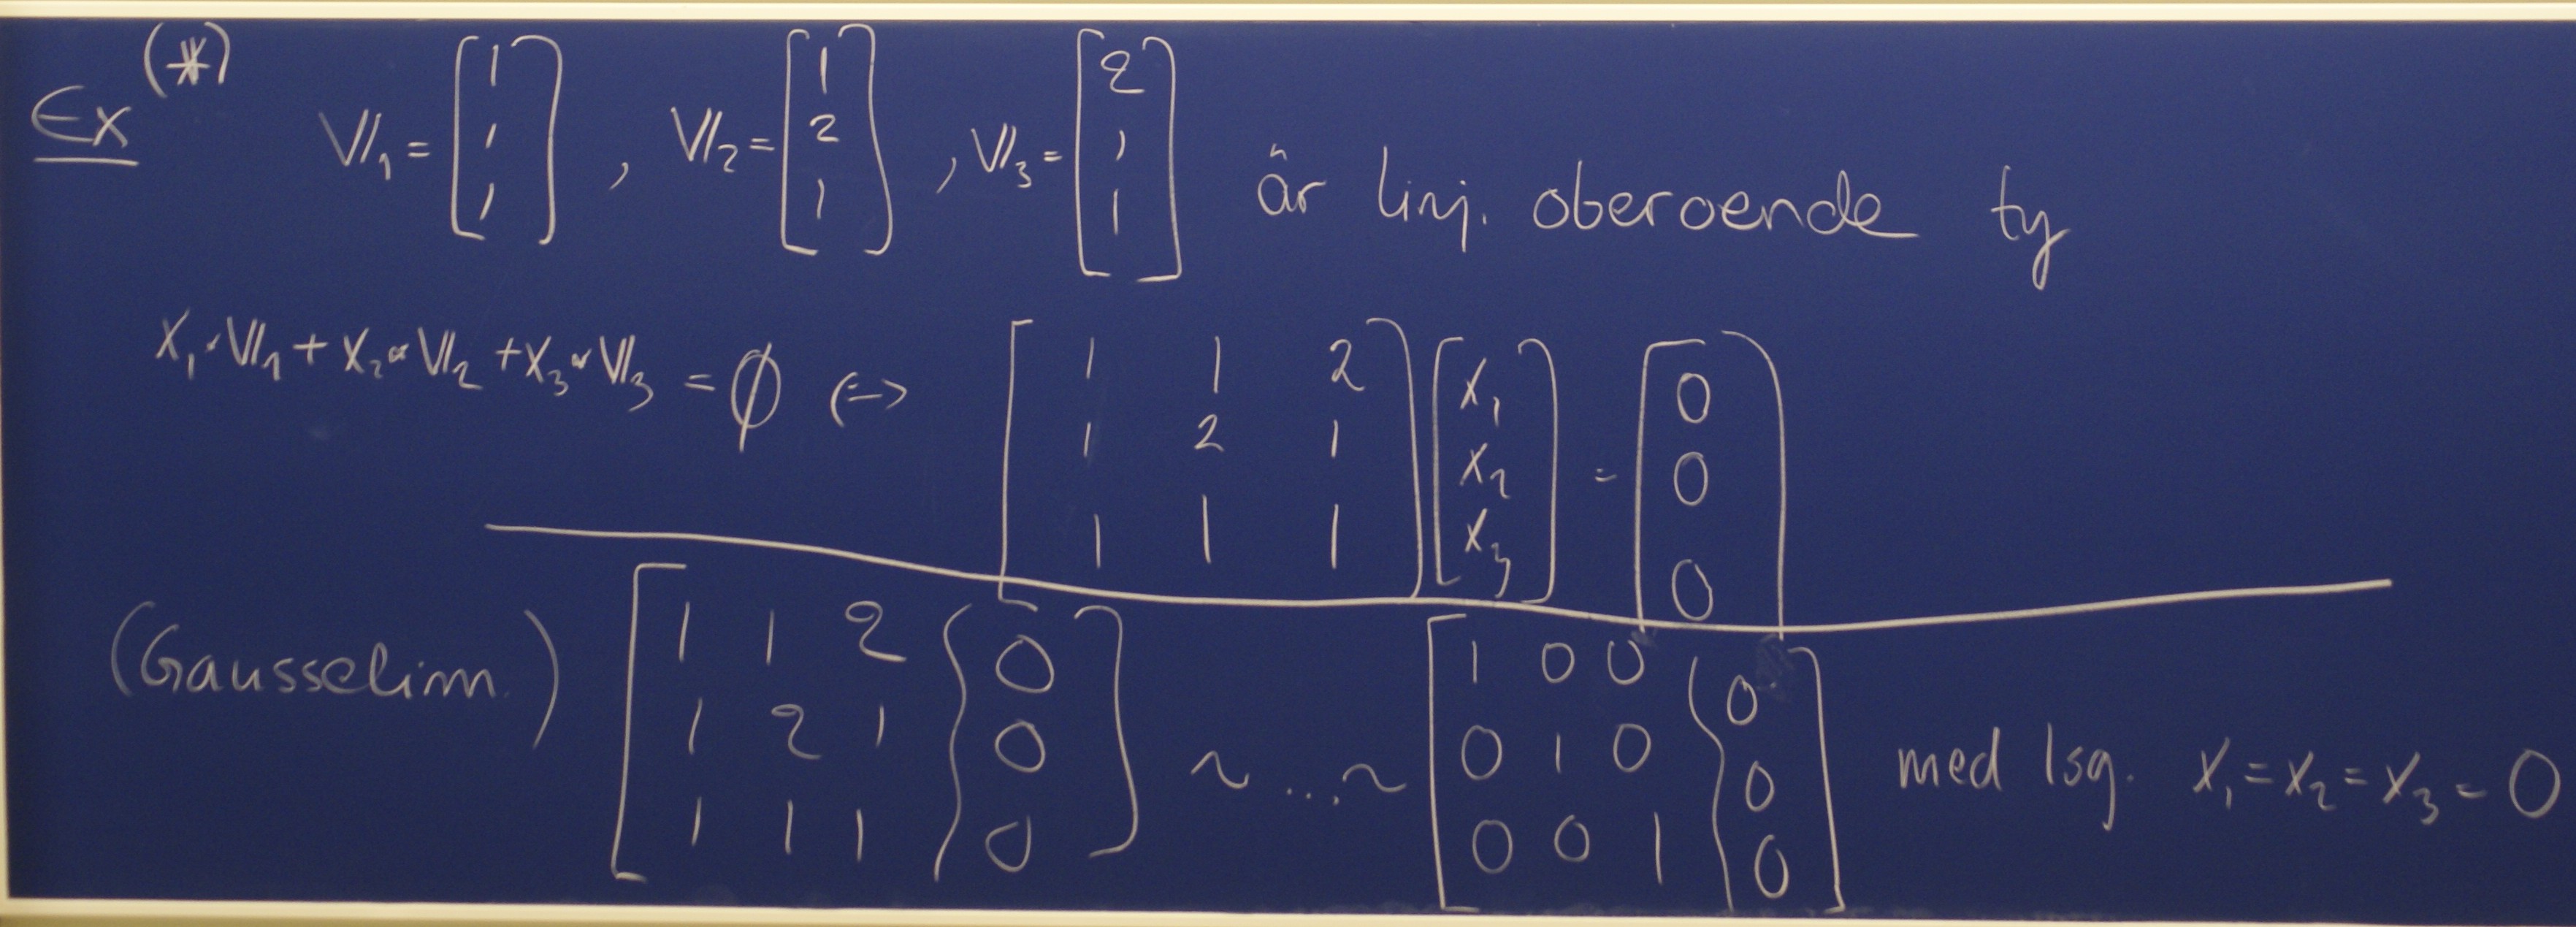 Ex (*) V₁ = [1 1 1], V₂ = [1 2 1], V₃ = [2 1 1] är linj. oberoende ty
x₁·V₁ + x₂·V₂ + x₃·V₃ = 0 ⇔ [1 1 2; 1 2 1; 1 1 1] [x₁; x₂; x₃] = [0; 0; 0]
(Gausselim.) [1 1 2 | 0; 1 2 1 | 0; 1 1 1 | 0] ~ ... ~ [1 0 0 | 0; 0 1 0 | 0; 0 0 1 | 0] med lsg. x₁ = x₂ = x₃ = 0